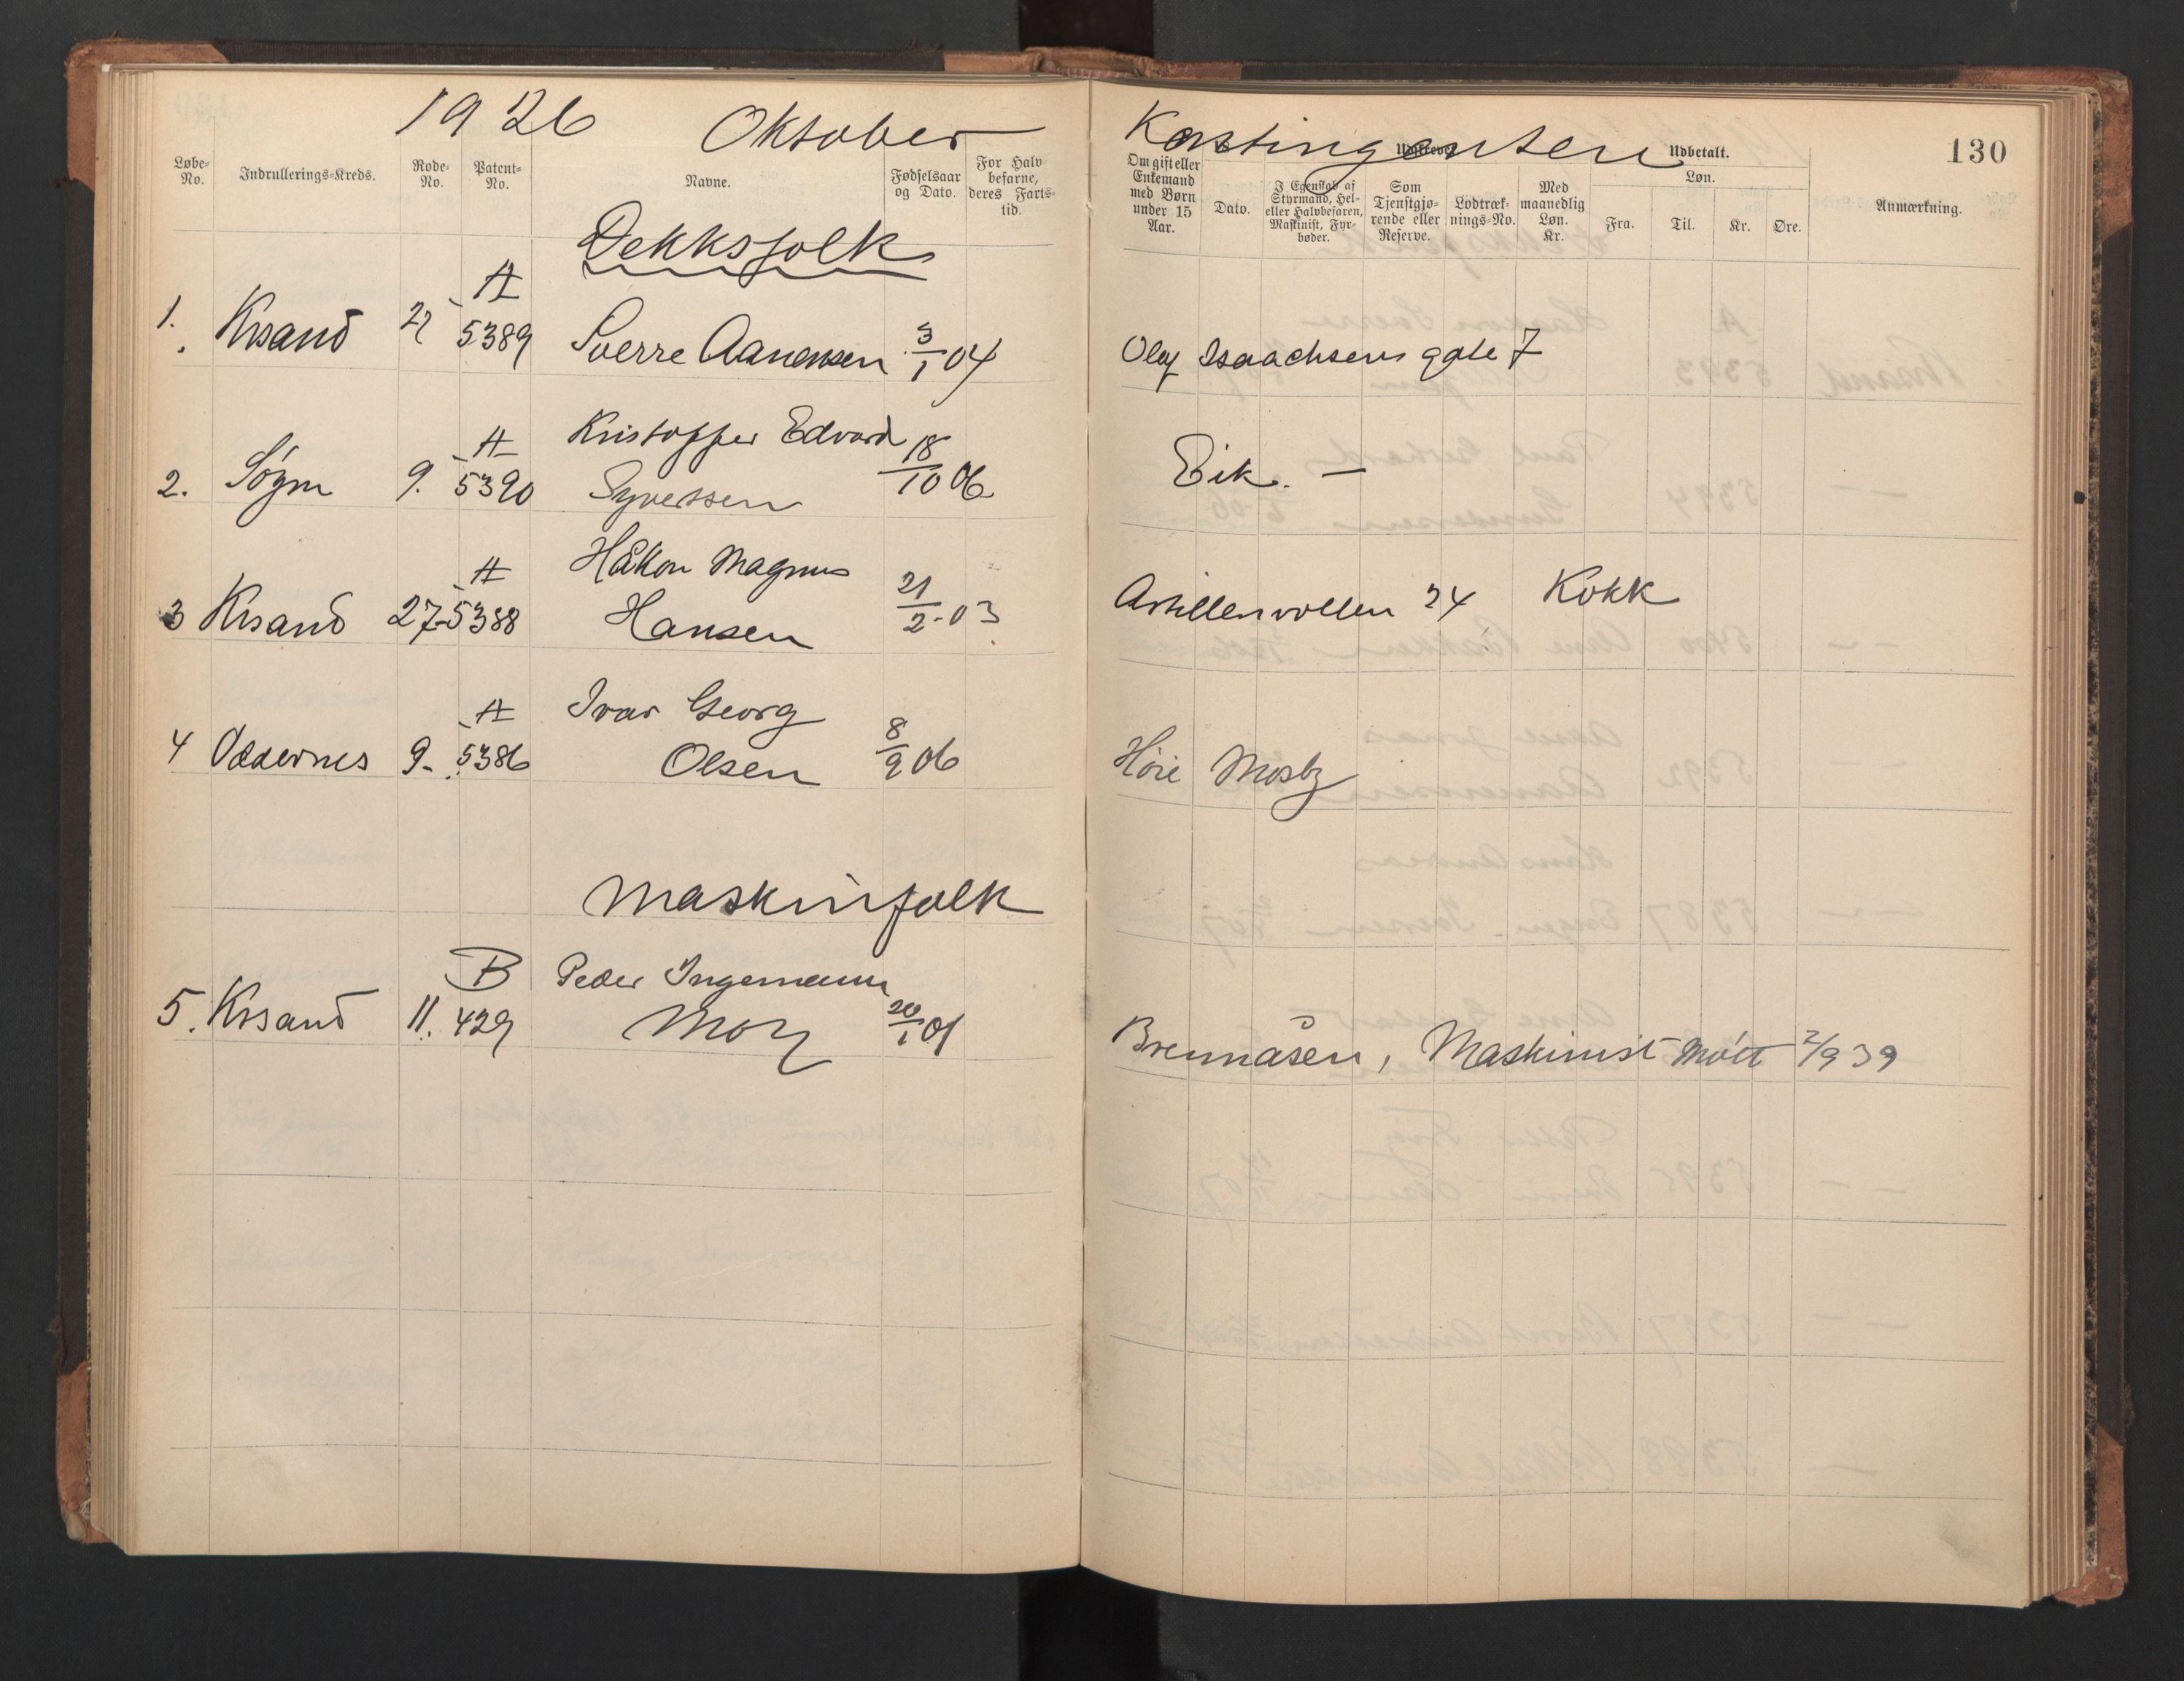 1926 Oktober Kontingenten
130
Løbe-No. Indrullerings-Kreds. Rode-No. Patent-No. Navne. Fødselsaar og Dato. For Halvbefarne, deres Farts-tid.
Om gift eller Enkemand med Børn under 15 Aar. Dato. I Egenskab af Styrmand, Hel- eller Halvbefaren, Maskinist, Fyrbøder. Som Tjenstgjørende eller Reserve. Lodtræknings-No. Med maanedlig Løn. Kr. Udbetalt. Løn. Fra. Til. Kr. Øre. Anmærkning.
Dekksfolk
A
1. Krsand 5389 Sverre Aanensen 3/1 04 Olaf Isaachsens gate 7
A Kristoffer Edvard
2. Søgn 9. 5390 Syvertsen 18/10 06 Eik. —
A Håkon Magnus
3 Krsand 27 5388 Hansen 21/2-03 Artillerivollen 24 Kokk
A Ivar Georg
4 Oddernes 9. 5386 Olsen 8/9 06 Høie Mosby
Maskinfolk
B Peder Ingemann
5. Krsand 11. 429 Moy 20/1 01 Brennåsen, Maskinist Møtt 2/9 39